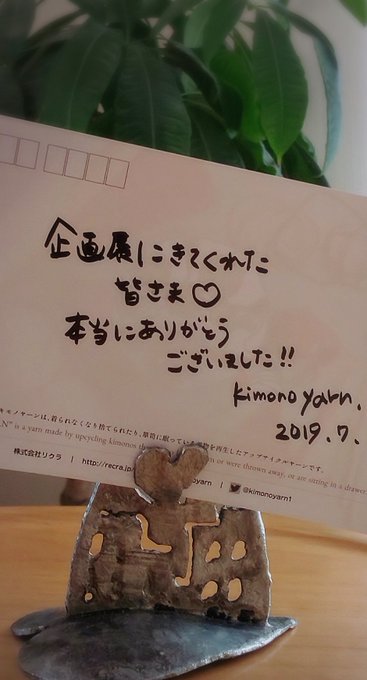 企画展にきてくれた
皆さま♡
本当にありがとう
ございました!!
kimono yarn.
2019.7.
キモノヤーンは、着られなくなり捨てられたり、箪笥に眠っている
を再生したアップサイクルヤーンです。
N" is a yarn made by upcycling kimonos th
n or were thrown away, or are sitting in a drawer
株式会社リクラ | http://recra.jp/
oyarn | @kimonoyarn1